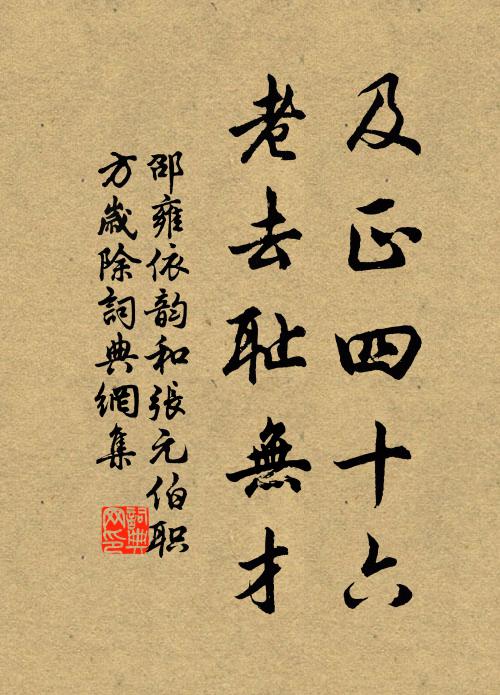 及正四十六
老去耻無才
邵雍依韵和張元伯职
方歲除詞典網集
詞典
网印